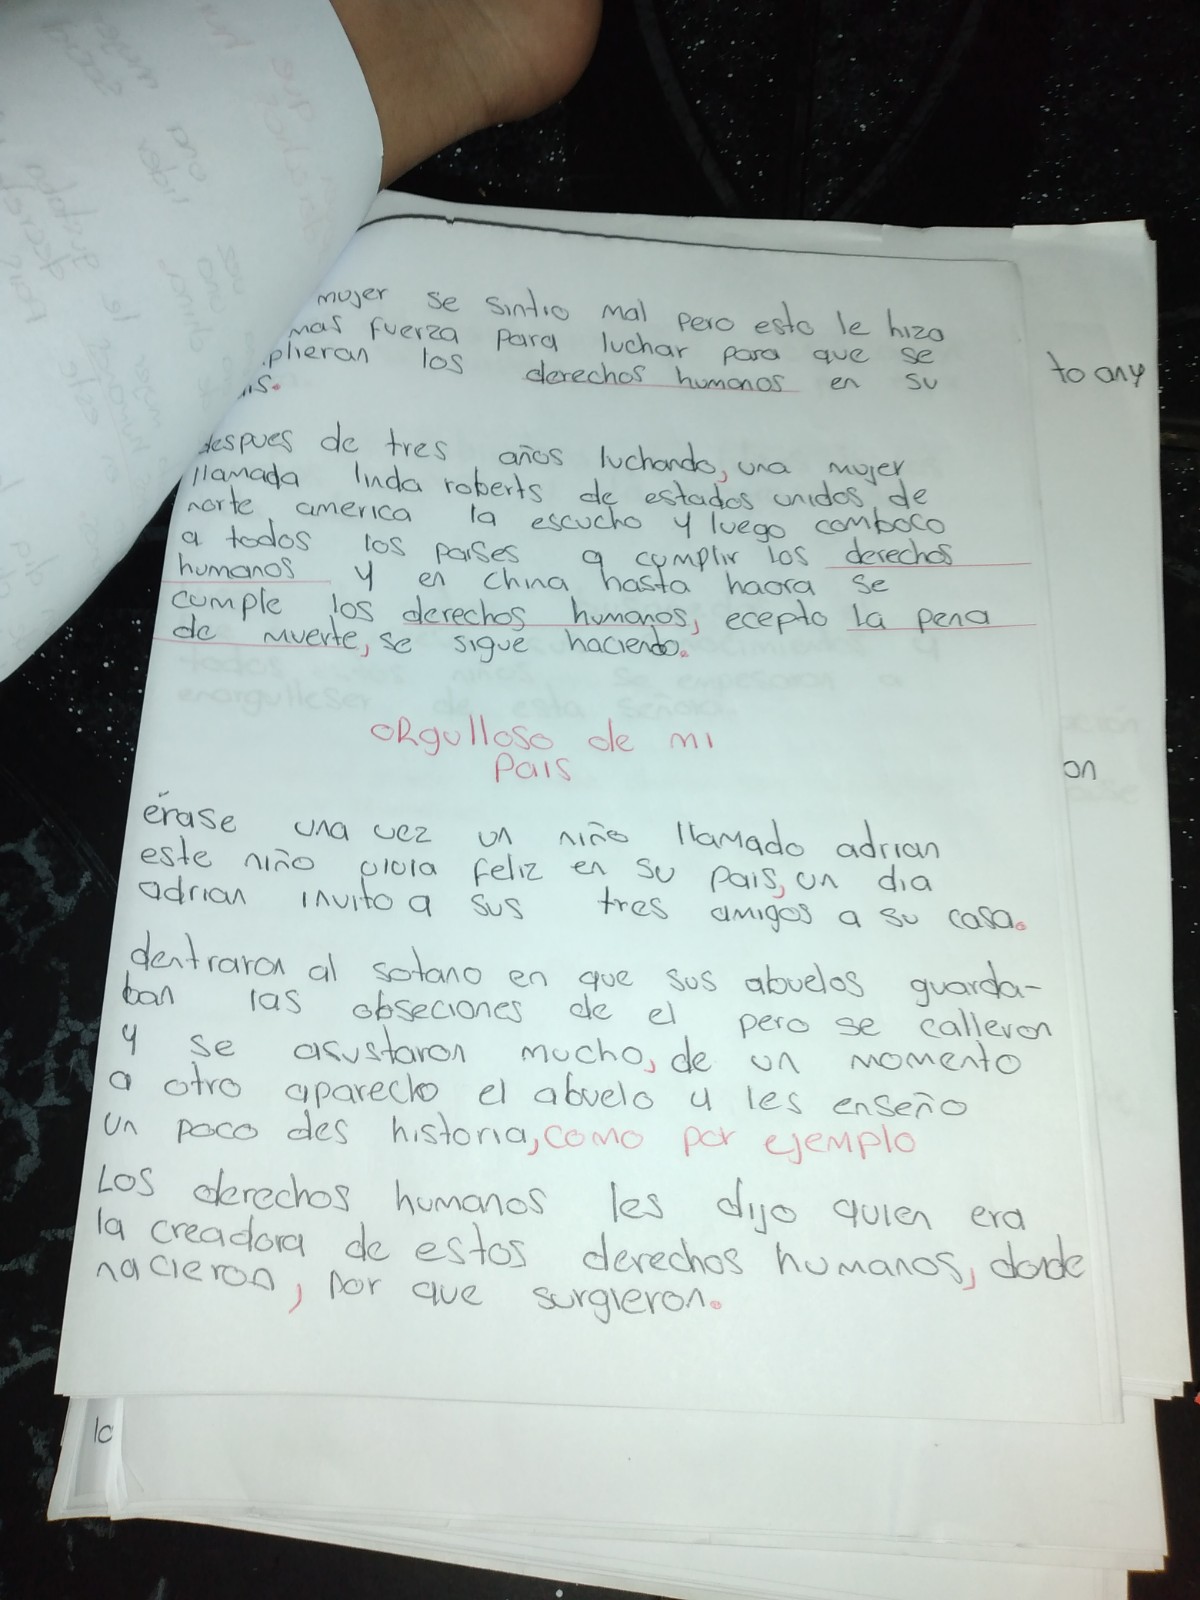 mujer se sintio mal pero esto le hizo
mas fuerza para luchar para que se
plieran los derechos humanos en su
is.
despues de tres años luchando, una mujer
llamada linda roberts de estados unidos de
norte america la escucho y luego comboco
a todos los paises a cumplir los derechos
humanos y en china hasta haora se
cumple los derechos humanos, ecepto la pena
de muerte, se sigue haciendo.
orgulloso de mi
pais
érase una vez un niño llamado adrian
este niño vivia feliz en su pais, un dia
adrian invito a sus tres amigos a su casa.
dentraron al sotano en que sus abuelos guarda-
ban las obseciones de el pero se calleron
y se asustaron mucho, de un momento
a otro aparecio el abuelo y les enseño
un poco des historia, como por ejemplo
Los derechos humanos les dijo quien era
la creadora de estos derechos humanos, donde
nacieron, por que surgieron.
to any
on
lo